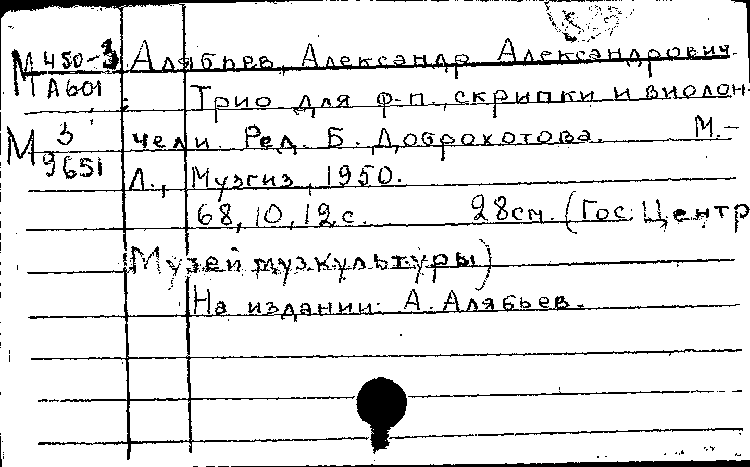 М 450-3 Алябьев, Александр Александрович.
А601
Трио для ф-п., скрипки и виолон-
М 3 чели. Ред. Б. Доброхотова. М.-
9651
Л., Музгиз, 1950.
68, 10, 12 с. 28см. (Гос. Центр
Музей муз культуры)
На издании: А. Алябьев.